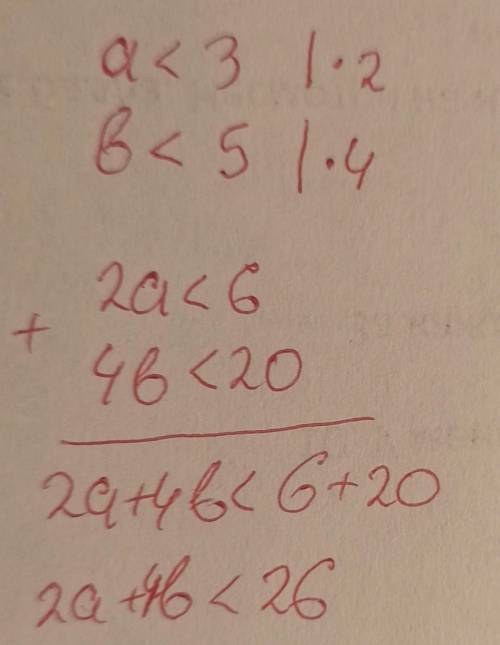 a < 3 | · 2
b < 5 | · 4
2a < 6
+
4b < 20
2a+4b < 6+20
2a+4b < 26